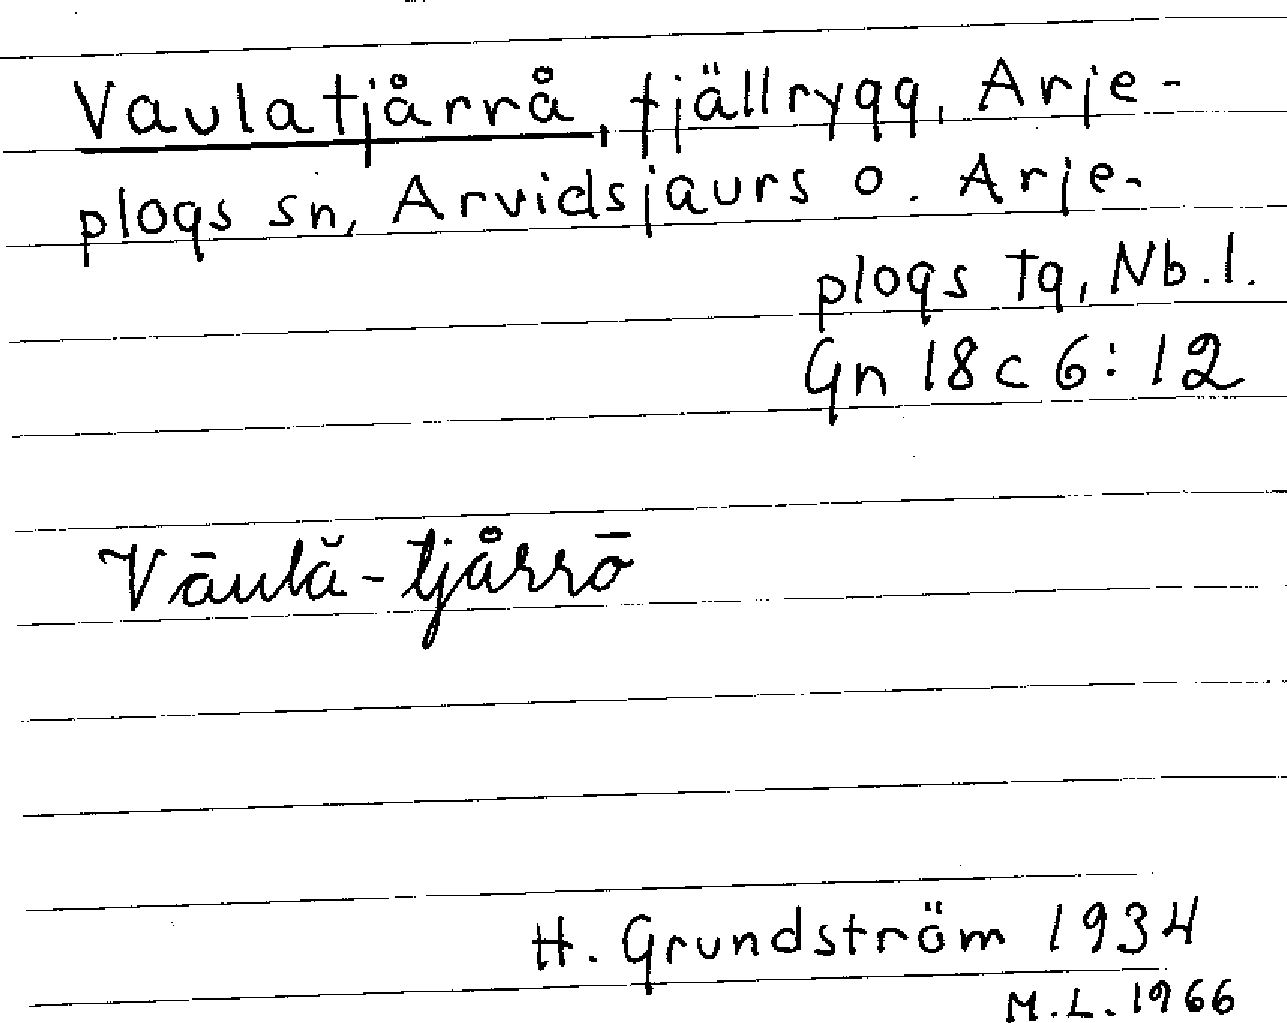 Vaulatjårrå, fjällrygg, Arje-
plogs sn, Arvidsjaurs o. Arje-
plogs Tg, Nb.l.
Gn 18c 6:12
Vāulă-tjårrō
H. Grundström 1934
M.L. 1966